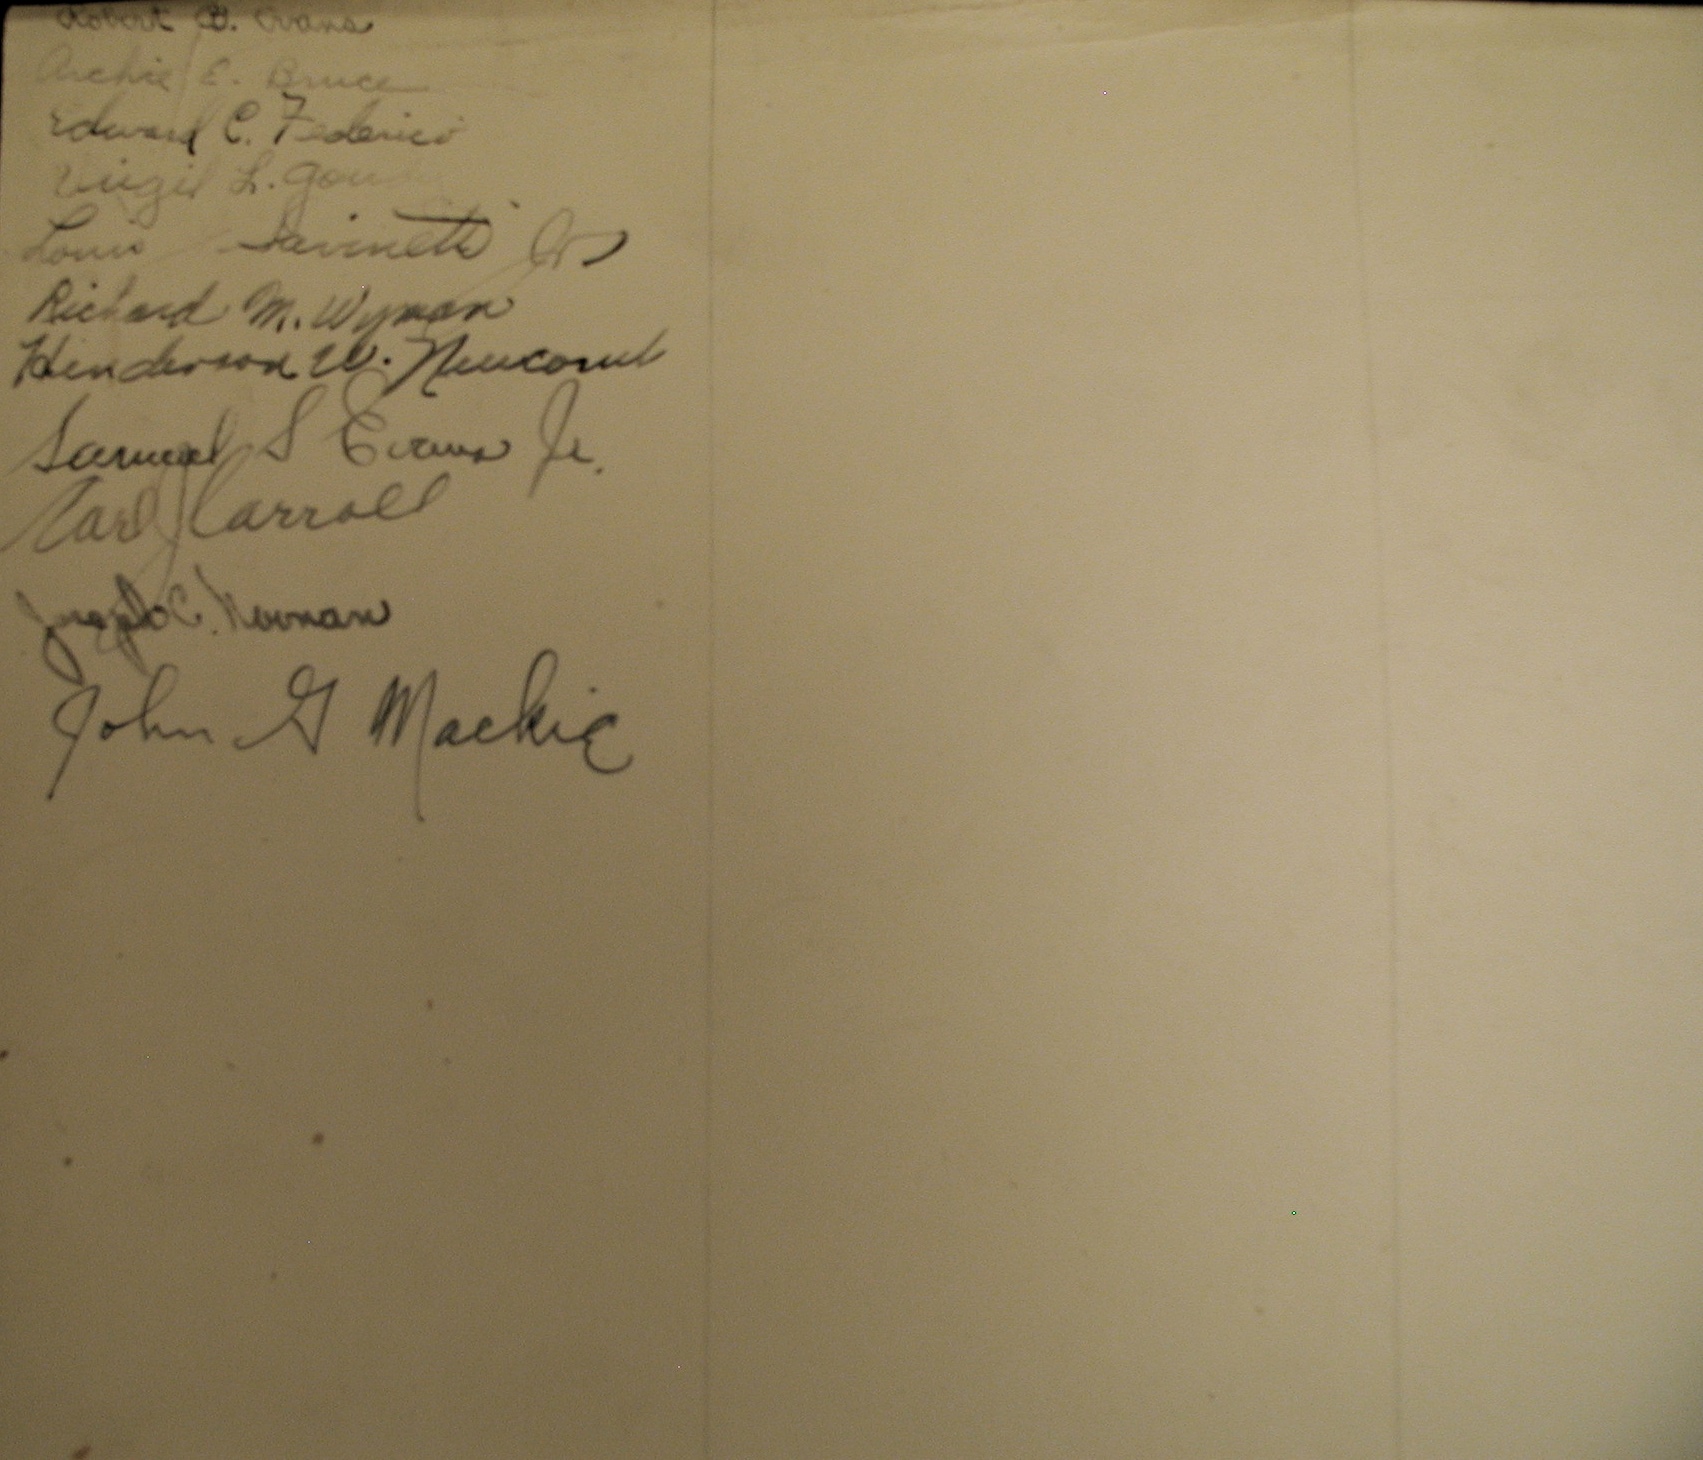 Robert B. Evans
Archie E. Bruce
Edward C. Federici
Virgil L.
Louis Jr
Richard M. Wyman
Henderson W. Newcomb
Samuel S Evans Jr.
Earl J Carroll
Joseph C. Noonan
John G Mackie